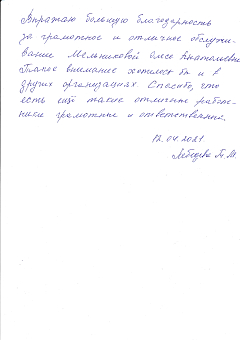 Выражаю большую благодарность
за грамотное и отличное обслужи-
вание Мельниковой Олесе Анатольевне
Такое внимание хотелось бы и в
других организациях Спасибо, что
есть ещё такие отличные работ-
ники грамотные и ответственные.
12.04.2021
Лебедева Т. М.